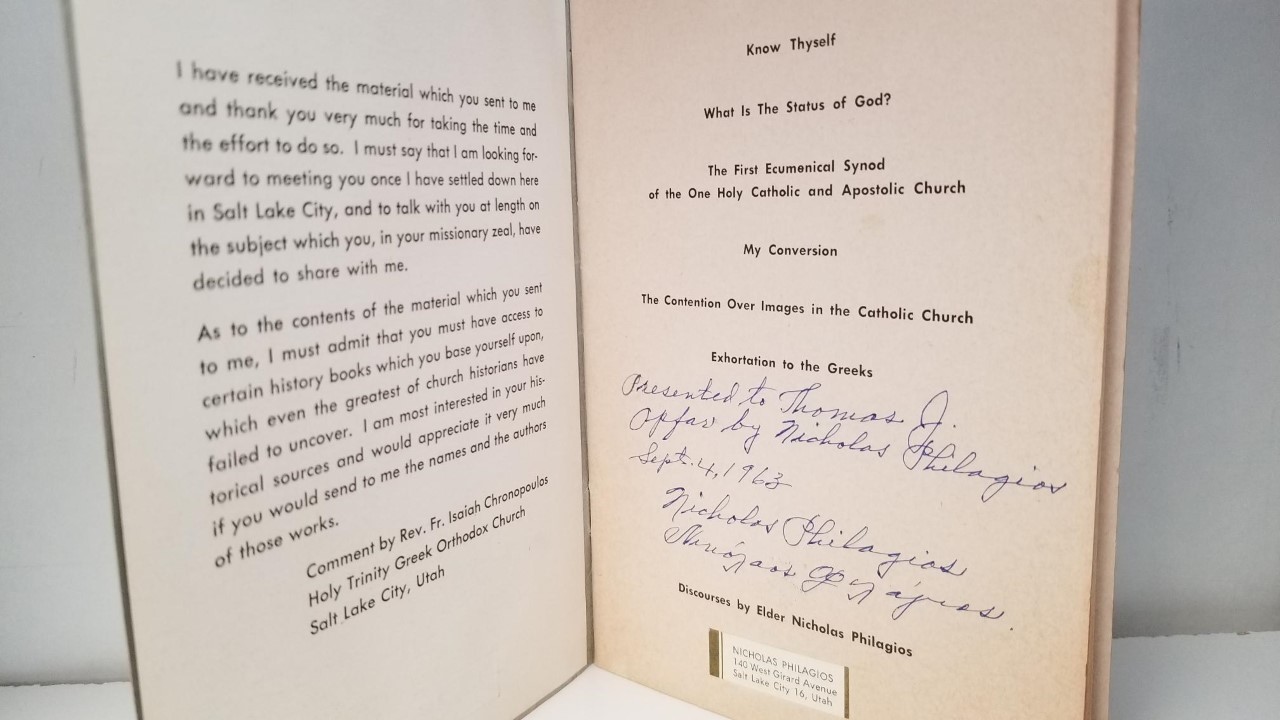 I have received the material which you sent to me
and thank you very much for taking the time and
the effort to do so. I must say that I am looking for-
ward to meeting you once I have settled down here
in Salt Lake City, and to talk with you at length on
the subject which you, in your missionary zeal, have
decided to share with me.
As to the contents of the material which you sent
to me, I must admit that you must have access to
certain history books which you base yourself upon,
which even the greatest of church historians have
failed to uncover. I am most interested in your his-
torical sources and would appreciate it very much
if you would send to me the names and the authors
of those works.
Comment by Rev. Fr. Isaiah Chronopoulos
Holy Trinity Greek Orthodox Church
Salt Lake City, Utah
Know Thyself
What Is The Status of God?
The First Ecumenical Synod
of the One Holy Catholic and Apostolic Church
My Conversion
The Contention Over Images in the Catholic Church
Exhortation to the Greeks
Presented to Thomas J.
by Nicholas Philagios
Sept. 4, 1963
Nicholas Philagios
Discourses by Elder Nicholas Philagios
NICHOLAS PHILAGIOS
140 West Girard Avenue
Salt Lake City 16, Utah